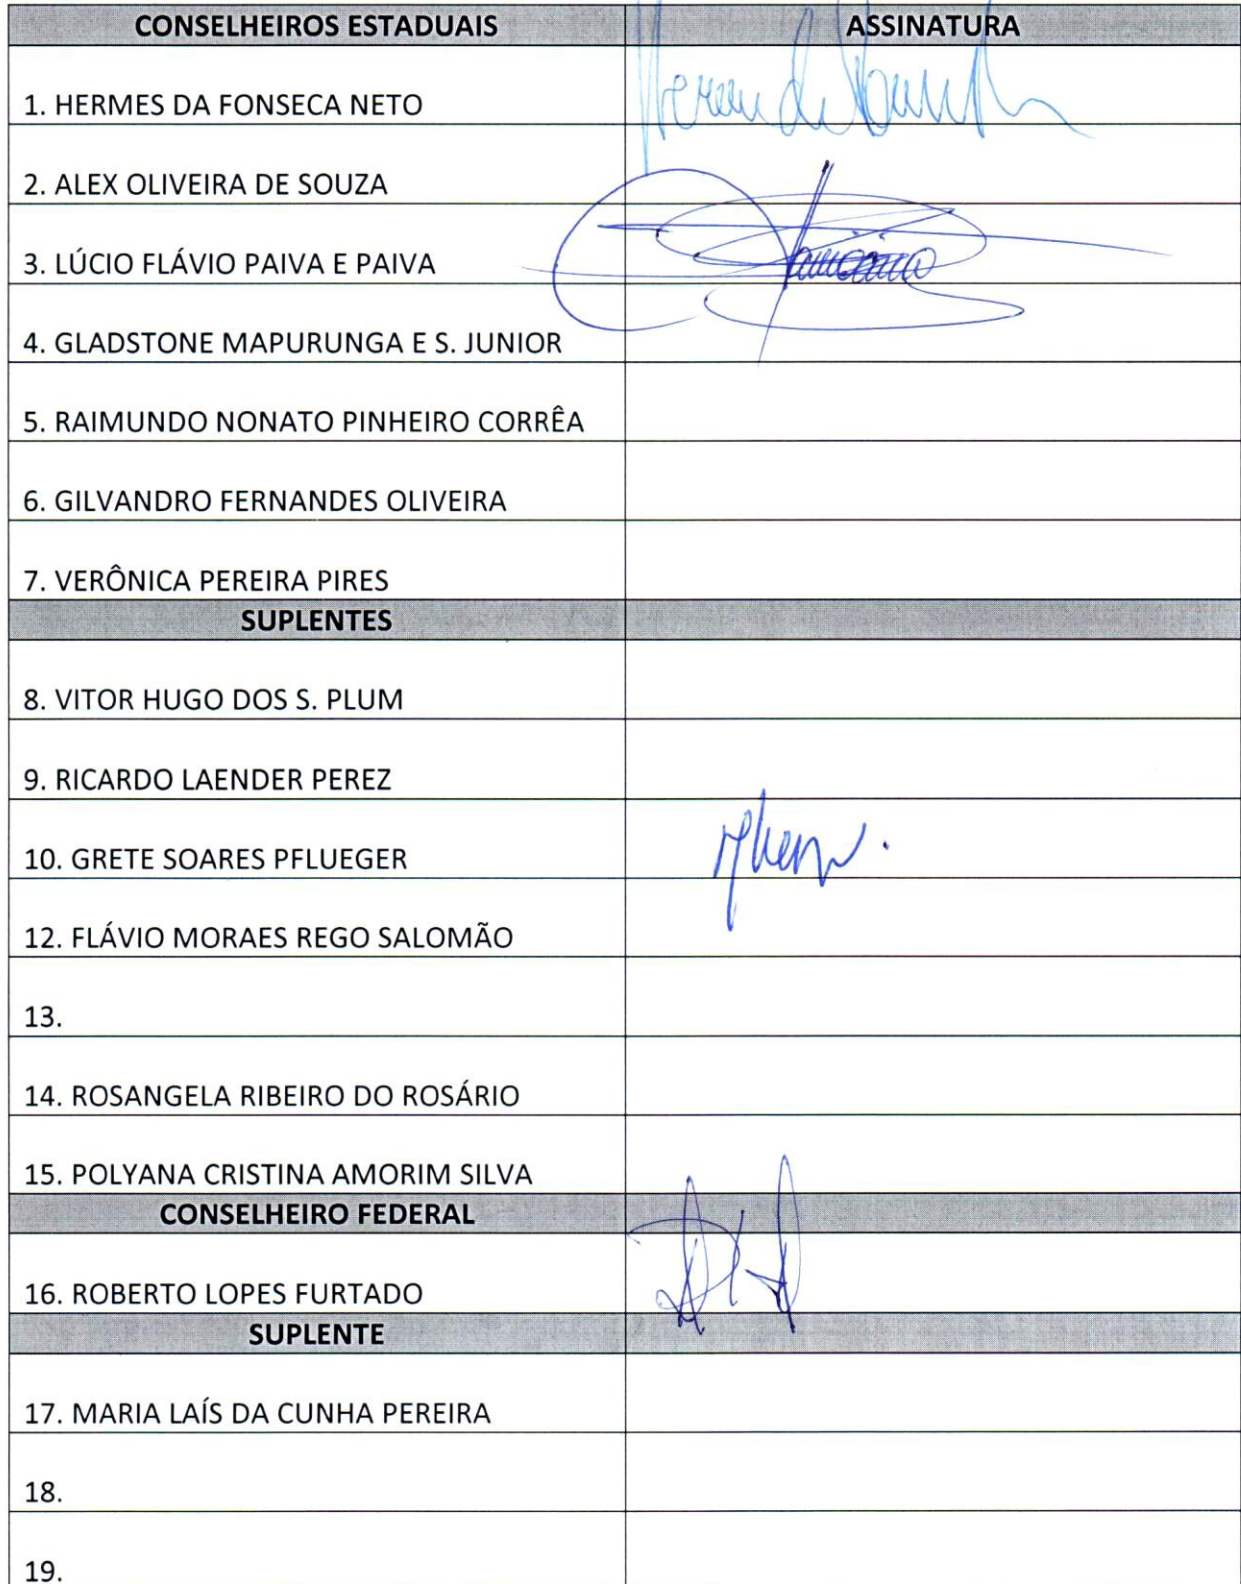 CONSELHEIROS ESTADUAIS ASSINATURA
1. HERMES DA FONSECA NETO
2. ALEX OLIVEIRA DE SOUZA
3. LÚCIO FLÁVIO PAIVA E PAIVA
4. GLADSTONE MAPURUNGA E S. JUNIOR
5. RAIMUNDO NONATO PINHEIRO CORRÊA
6. GILVANDRO FERNANDES OLIVEIRA
7. VERÔNICA PEREIRA PIRES
SUPLENTES
8. VITOR HUGO DOS S. PLUM
9. RICARDO LAENDER PEREZ
10. GRETE SOARES PFLUEGER
12. FLÁVIO MORAES REGO SALOMÃO
13.
14. ROSANGELA RIBEIRO DO ROSÁRIO
15. POLYANA CRISTINA AMORIM SILVA
CONSELHEIRO FEDERAL
16. ROBERTO LOPES FURTADO
SUPLENTE
17. MARIA LAÍS DA CUNHA PEREIRA
18.
19.